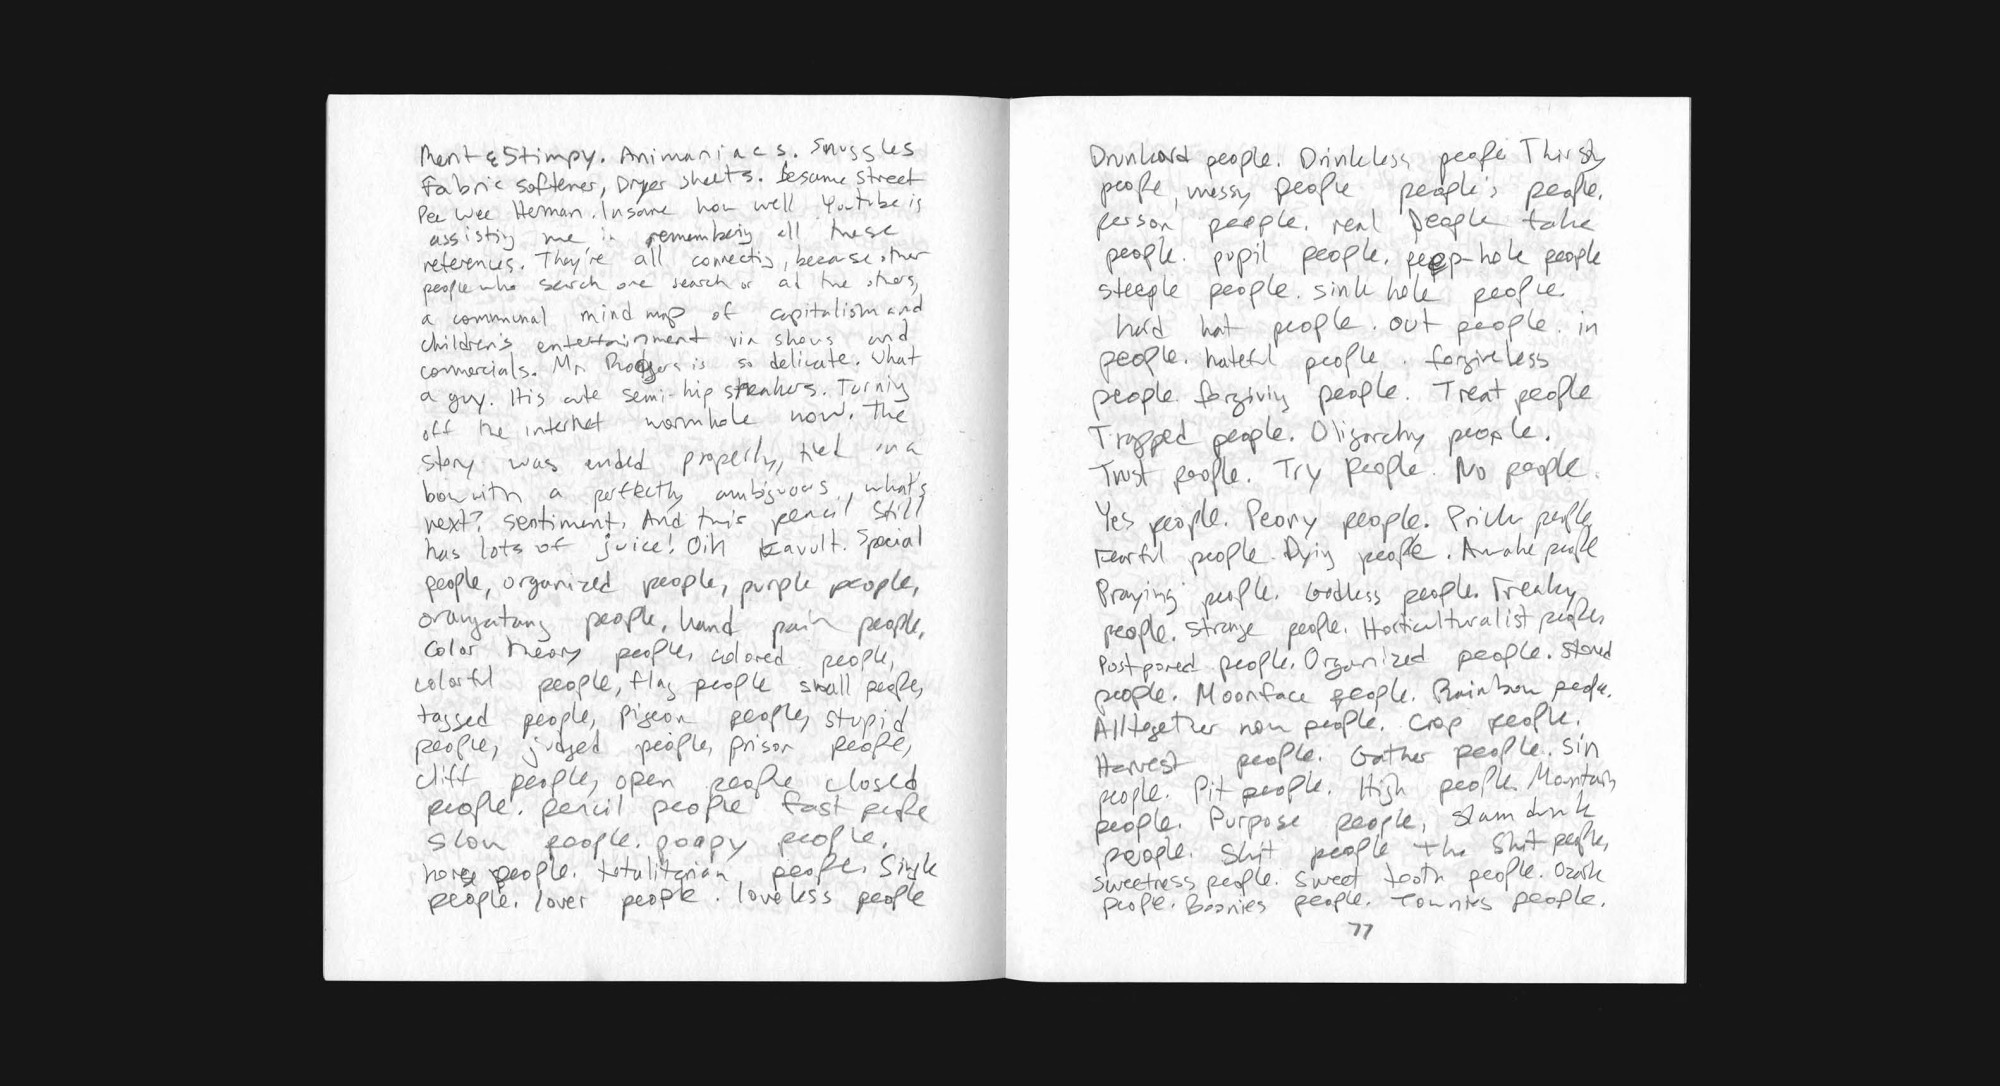 & Stimpy. Animaniacs. Snuggles
Fabric softener, Dryer sheets. Sesame Street
Pee Wee Herman. Insane how well Youtube is
assisting me in remembering all these
references. They're all connecting, because other
people who search one search all the others,
a communal mind map of capitalism and
children's entertainment via shows and
commercials. Mr. Rodgers is so delicate. What
a guy. His cute semi-hip sneakers. Turning
off the internet wormhole now. The
story was ended properly, tied in a
bow with a perfectly ambiguous, what's
next? sentiment. And this pencil still
has lots of juice! Special
people, organized people, purple people,
orangatang people, hand pain people,
Color theory people, colored people,
colorful people, flag people small people,
tagged people, pigeon people, stupid
people, judged people, prison people,
cliff people, open people closed
people. pencil people fast people
slow people. poopy people.
people. totalitarian people. Single
people. lover people. loveless people
Drunkard people. Drinkless people Thirsty
people, messy people people's people.
person people. real people take
people. pupil people. peep-hole people
steeple people. sink hole people.
hard hat people. out people. in
people. hateful people. forgiveless
people. forgiving people. Treat people
Trapped people. Oligarchy people.
Trust people. Try People. No people.
Yes people. Peony people. people
Fearful people. Dying people. Awake people
Praying people. Godless people. Freaky
people. Strange people. Horticulturalist people
Postponed people. Organized people. Stoned
people. Moonface people. Rainbow people.
Alltogether now people. Crop people.
Harvest people. Gather people. Sin
people. Pit people. High people. Mountain
people. Purpose people, slam dunk
people. Shit people the Shit people,
sweetness people. Sweet tooth people. Ozark
people. Boonies people. Townies people.
77